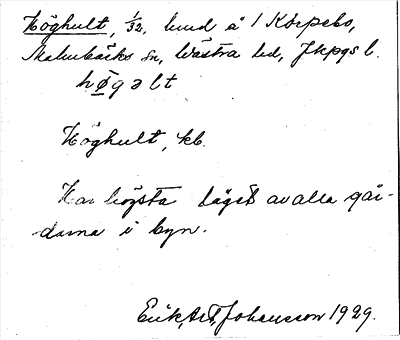 Höghult, 1/32, hmd å 1 Korpebo,
Malmbäcks sn, Västra hd, Jkpgs l.
høgəlt
Höghult, kb.
Har högsta läget av alla går-
darna i byn.
Erik Art. Johansson 1929.